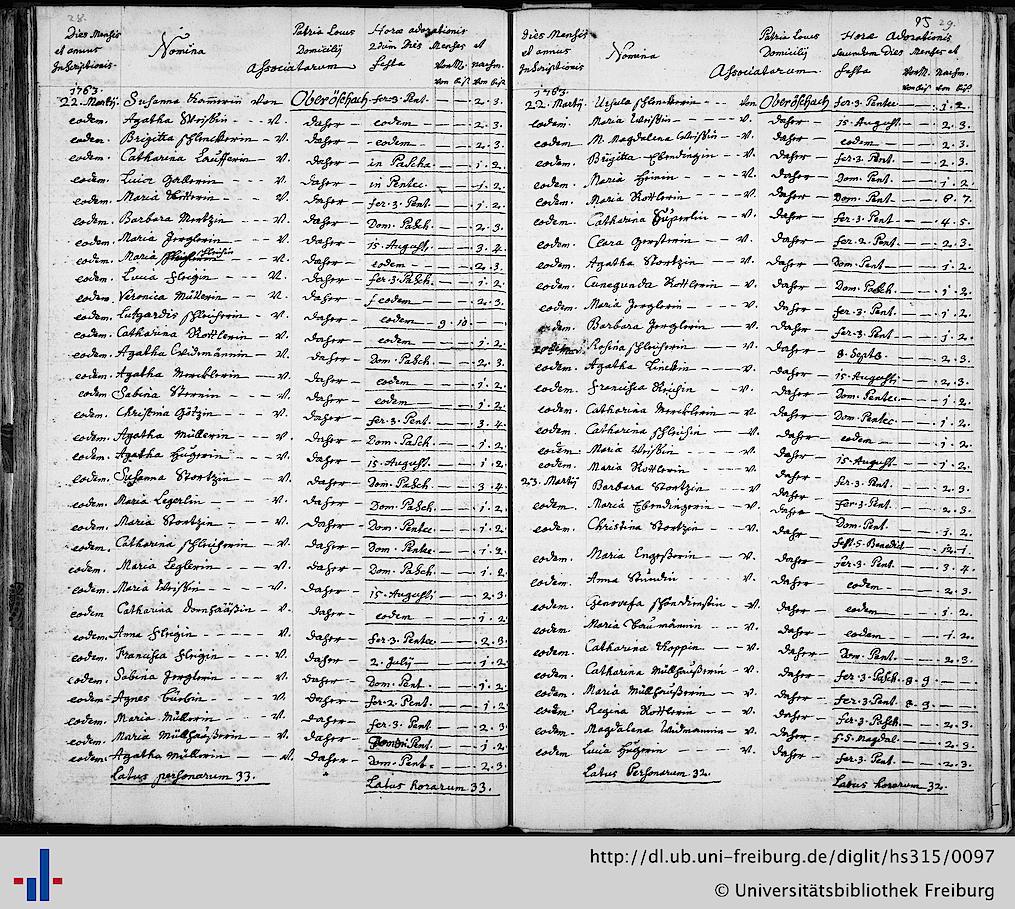 28.
Dies Mensis et annus Inscriptionis
Nomina Associatorum
Patria Locus Domicilij
Horæ adorationis 2dum Dies Menses et festa
Vor M. von bis
nachm. von bis
1763.
22. Martij Susanna von Oberöschach fer. 3. Pent. — — 2. 3.
eodem. Agatha Weissin — v. daher — eodem — — 2. 3.
eodem. Brigitta v. daher — eodem — — 2. 3.
eodem. Catharina Laufferin — v. daher — in Pascha — — 1. 2.
eodem. Lucia v. daher — in Pentec. — — 1. 2.
eodem. Maria v. daher — fer. 3. Pent. — — 1. 2.
eodem. Barbara Mentzin — v. daher — Dom. Pasch. — — 2. 3.
eodem. Maria Jerglerin — v. daher — 15. August. — — 3. 4.
eodem. Maria Fleigin v. daher — eodem — — 2. 3.
eodem. Lucia Fleigin — v. daher — fer. 3. Pasch. — — 1. 2.
eodem. Veronica Müllerin — v. daher — eodem — — 2. 3.
eodem. Lutgardis Schleicherin — v. daher — eodem — 9. 10. — —
eodem. Catharina Kottlerin — v. daher — eodem — — 1. 2.
eodem. Agatha Widmännin — v. daher — Dom. Pasch. — — 2. 3.
eodem. Agatha Mercklerin — v. daher — eodem — — 1. 2.
eodem. Sabina v. daher — eodem — — 1. 2.
eodem. Christina Götzin — v. daher — fer. 3. Pent. — — 3. 4.
eodem. Agatha Müllerin — v. daher — Dom. Pasch. — — 1. 2.
eodem. Agatha Hügerin — v. daher — 15. August. — — 1. 2.
eodem. Susanna Stortzin — v. daher — Dom. Pasch. — — 3. 4.
eodem. Maria Legerlin — v. daher — Dom. Pasch. — — 1. 2.
eodem. Maria Stortzin — v. daher — Dom. Pentec. — — 1. 2.
eodem. Catharina Schleicherin — v. daher — Dom. Pentec. — — 1. 2.
eodem. Maria Zeglerin — v. daher — Dom. Pasch. — — 1. 2.
eodem. Maria Weissin — v. daher — 15. Augusti — — 2. 3.
eodem Catharina v. daher — eodem — — 1. 2.
eodem. Anna Fleigin — v. daher — fer. 3. Pentec. — — 2. 3.
eodem. Francisca Fleigin — v. daher — 2. July — — 1. 2.
eodem. Sabina Jerglerin — v. daher — Dom. Pent. — — 1. 2.
eodem. Agnes v. daher — fer. 2. Pent. — — 1. 2.
eodem. Maria Müllerin — v. daher — fer. 3. Pent. — — 2. 3.
eodem. Maria Müllhaußerin — v. daher — Pent. — — 1. 2.
eodem. Agatha Müllerin — v. daher — Dom. Pent. — — 2. 3.
Latus personarum 33.
Latus horarum 33.
95 29.
dies Mensis et annus Inscriptionis
Nomina Associatorum
Patria Locus Domicilij
Horæ Adorationis secundum Dies Menses et festa
Vor M. von bis
Nachm. von bis
1763.
22. Martij. Ursula von Oberöschach fer. 3. Pentec. — — 1. 2.
eodem. Maria Weissin — v. daher — 15. August. — — 2. 3.
eodem. M. Magdalena Weissin — v. daher — eodem — — 2. 3.
eodem. Brigitta Ebendingin — v. daher — fer. 3. Pent. — — 2. 3.
eodem. Maria v. daher — Dom. Pent. — — 1. 2.
eodem. Maria Kottlerin — v. daher — Dom. Pent. — — 6. 7.
eodem. Catharina v. daher — fer. 3. Pent. — — 4. 5.
eodem. Clara Gersterin — v. daher — fer. 2. Pent. — — 2. 3.
eodem. Agatha Stortzin — v. daher — Dom. Pent. — — 1. 2.
eodem. Cunegunda Kottlerin — v. daher — Dom. Pasch. — — 1. 2.
eodem. Maria Jerglerin — v. daher — fer. 3. Pent. — — 1. 2.
eodem. Barbara Jerglerin — v. daher — fer. 3. Pent. — — 1. 2.
eodem. Rosina Schleicherin — v. daher — 8. Septb. — — 2. 3.
eodem. Agatha Linckin — v. daher — 15. Augusti — — 2. 3.
eodem. Francisca v. daher — Dom. Pentec. — — 1. 2.
eodem. Catharina Mercklerin — v. daher — Dom. Pentec. — — 1. 2.
eodem. Catharina v. daher — eodem — — 1. 2.
eodem. Maria Weissin — v. daher — 15. August. — — 1. 2.
eodem. Maria Kottlerin — v. daher — fer. 3. Pent. — — 2. 3.
23. Martij Barbara Stortzin — v. daher — fer. 3. Pent. — — 2. 3.
eodem. Maria Ebendingerin — v. daher — Dom. Pent. — — 1. 2.
eodem. Christina Stortzin — v. daher — fest. S. Benedict — — 12. 1.
eodem. Maria v. daher — fer. 3. Pent. — — 3. 4.
eodem. Anna v. daher — eodem — — 2. 3.
eodem. Genovefa v. daher — eodem — — 1. 2.
eodem. Maria v. daher — eodem — — 1. 2.
eodem. Catharina v. daher — Dom. Pent. — — 2. 3.
eodem. Catharina Müllhaußerin — v. daher — fer. 3. Pasch. 8. 9. — —
eodem. Maria Müllhaußerin — v. daher — fer. 3. Pent. 8. 9. — —
eodem. Regina Kottlerin — v. daher — fer. 3. Pasch. — — 2. 3.
eodem. Magdalena Widmannin — v. daher — f. S. Magdal. — — 2. 3.
eodem Lucia Hügerin — v. daher — fer. 3. Pent. — — 2. 3.
Latus Personarum 32.
Latus horarum 32.
http://dl.ub.uni-freiburg.de/diglit/hs315/0097
© Universitätsbibliothek Freiburg